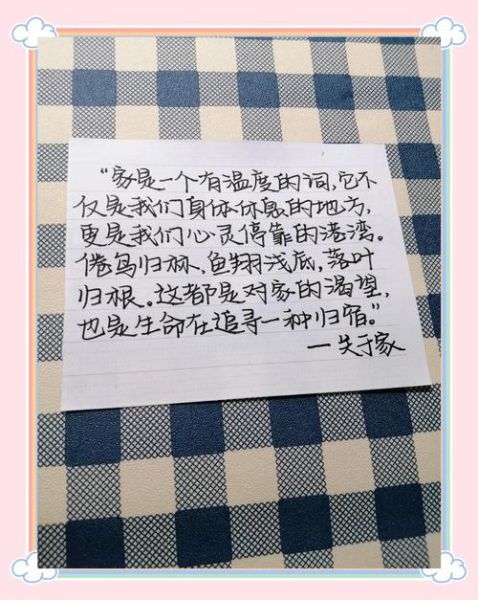 “家是一个有温度的词,它不
仅是我们身体休息的地方,
更是我们心灵停靠的港湾。
倦鸟归林,鱼翔浅底,落叶
归根。这都是对家的渴望,
也是生命在追寻一种归宿。”
—关于家